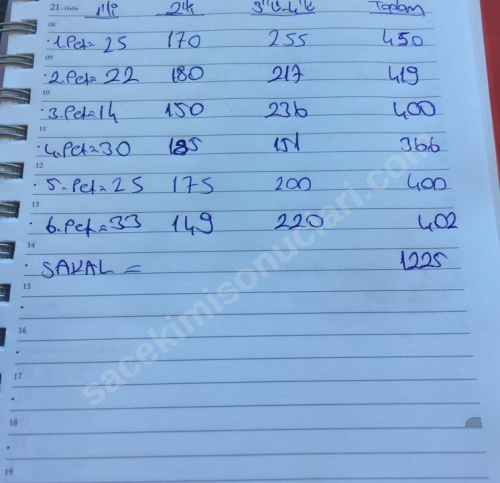 21 Hafta 1'li 2'li 3'lü-4'lü Toplam
08
1.Pet= 25 170 255 450
09
2.Pet= 22 180 217 419
10
3.Pet= 14 150 236 400
11
4.Pet= 30 185 151 366
12
5.Pet= 25 175 200 400
13
6.Pet= 33 149 220 402
14
SAKAL = 1225
15
16
17
18
19
sacekimisonuclari.com